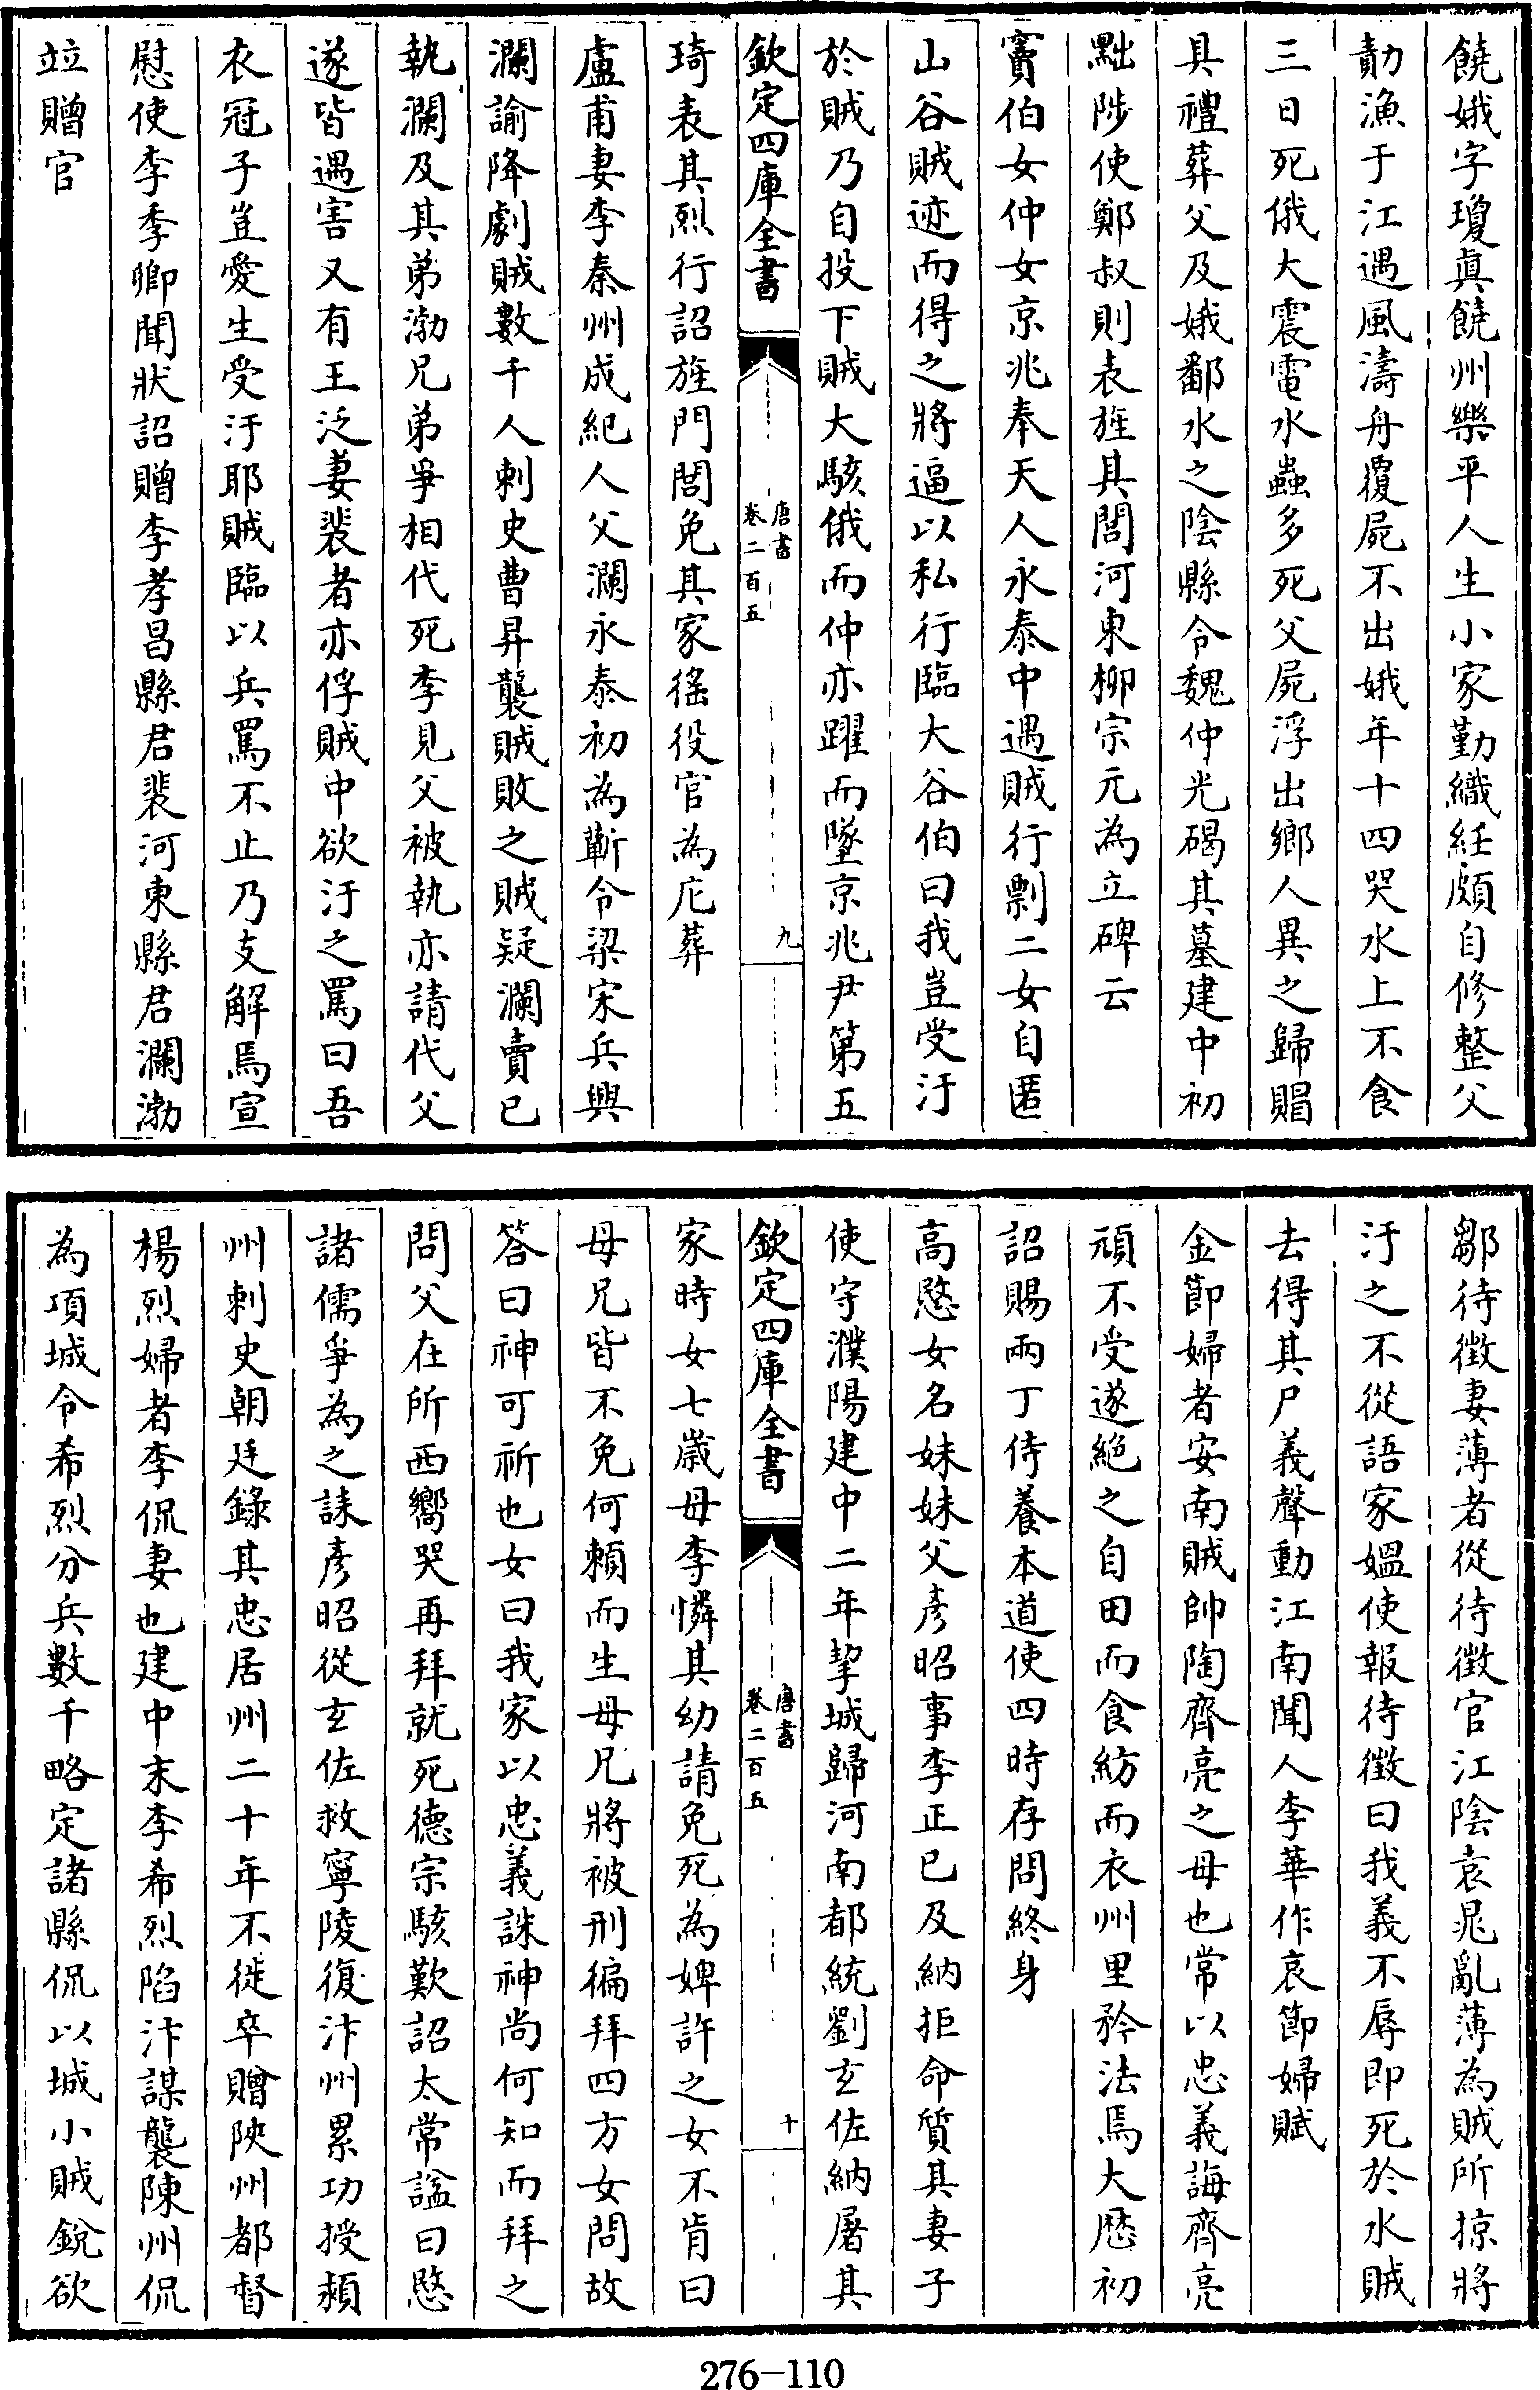 饒娥字瓊真饒州樂平人生小家勤織紝頗自修整父
勣漁于江遇風濤舟覆屍不出娥年十四哭水上不食
三日死俄大震電水蟲多死父屍浮出鄉人異之歸賵
具禮葬父及娥鄱水之陰縣令魏仲光碣其墓建中初
黜陟使鄭叔則表旌其閭河東柳宗元為立碑云
竇伯女仲女京兆奉天人永泰中遇賊行剽二女自匿
山谷賊迹而得之將逼以私行臨大谷伯曰我豈受汙
於賊乃自投下賊大駭俄而仲亦躍而墜京兆尹第五
欽定四庫全書
唐書
卷二百五
九
琦表其烈行詔旌門閭免其家徭役官為庀葬
盧甫妻李秦州成紀人父瀾永泰初為蘄令梁宋兵興
瀾諭降劇賊數千人刺史曹昇襲賊敗之賊疑瀾賣已
執瀾及其弟渤兄弟爭相代死李見父被執亦請代父
遂皆遇害又有王泛妻裴者亦俘賊中欲汙之罵曰吾
衣冠子豈愛生受汙耶賊臨以兵罵不止乃支解焉宣
慰使李季卿聞狀詔贈李孝昌縣君裴河東縣君瀾渤
竝贈官
鄒待徵妻薄者從待徵官江陰袁晁亂薄為賊所掠將
汙之不從語家媼使報待徵曰我義不辱即死於水賊
去得其尸義聲動江南聞人李華作哀節婦賦
金節婦者安南賊帥陶齊亮之母也常以忠義誨齊亮
頑不受遂絕之自田而食紡而衣州里矜法焉大厯初
詔賜兩丁侍養本道使四時存問終身
高愍女名妹妹父彥昭事李正已及納拒命質其妻子
使守濮陽建中二年挈城歸河南都統劉玄佐納屠其
欽定四庫全書
唐書
卷二百五
十
家時女七歲母李憐其幼請免死為婢許之女不肯曰
母兄皆不免何賴而生母兄將被刑徧拜四方女問故
答曰神可祈也女曰我家以忠義誅神尚何知而拜之
問父在所西嚮哭再拜就死德宗駭歎詔太常謚曰愍
諸儒爭為之誄彥昭從玄佐救寧陵復汴州累功授潁
州刺史朝廷錄其忠居州二十年不徙卒贈陜州都督
楊烈婦者李侃妻也建中末李希烈陷汴謀襲陳州侃
為項城令希烈分兵數千略定諸縣侃以城小賊銳欲
276-110